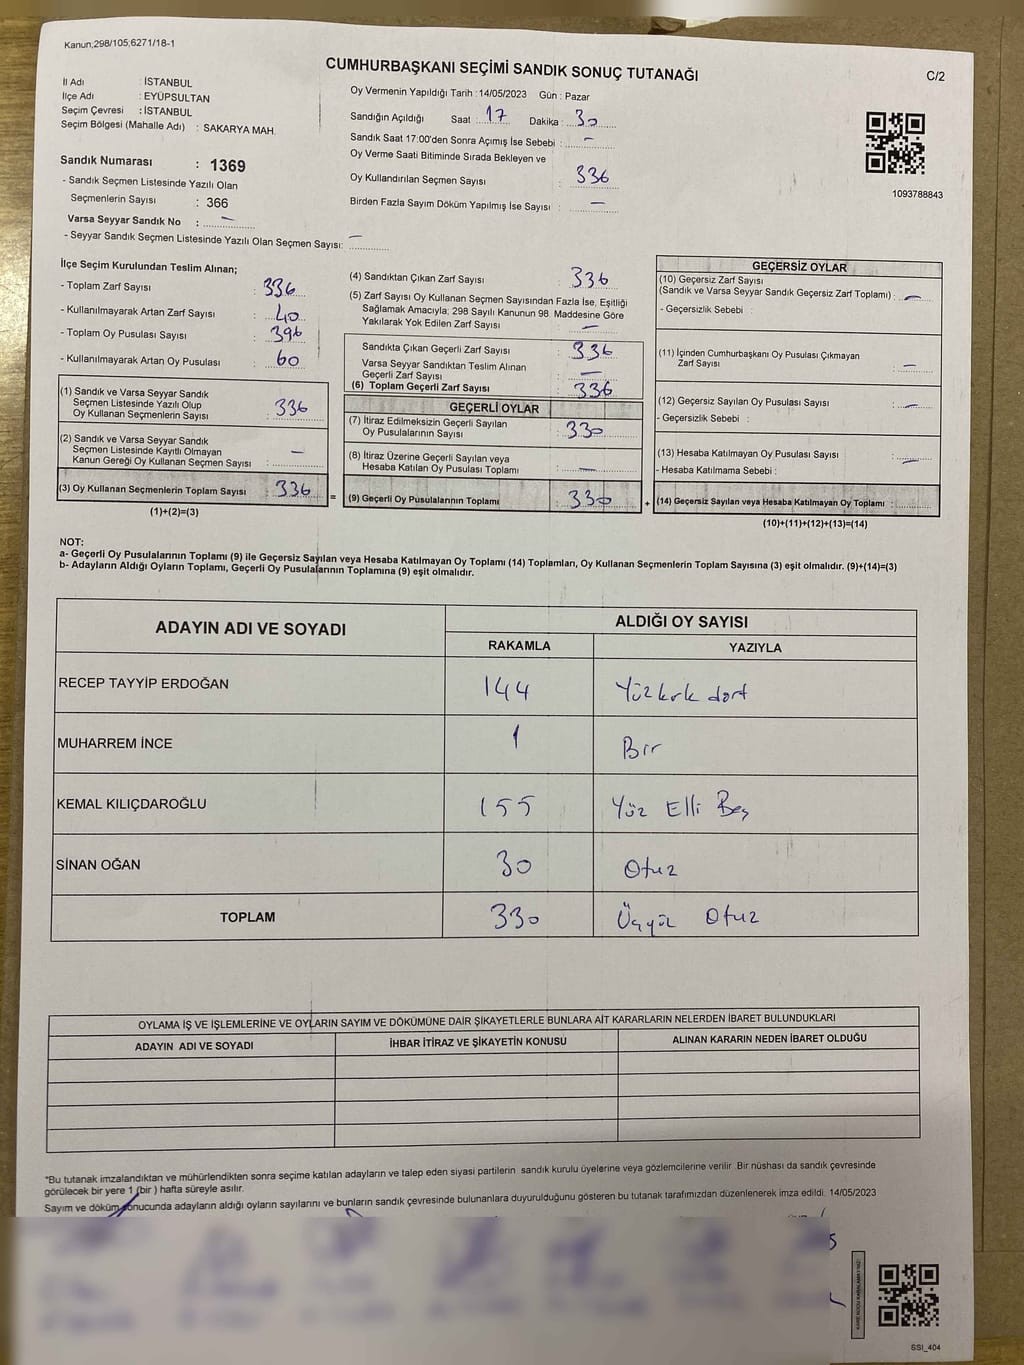 Kanun;298/105;6271/18-1
CUMHURBAŞKANI SEÇİMİ SANDIK SONUÇ TUTANAĞI
C/2
İl Adı : İSTANBUL
İlçe Adı : EYÜPSULTAN
Seçim Çevresi : İSTANBUL
Seçim Bölgesi (Mahalle Adı) : SAKARYA MAH.
Sandık Numarası : 1369
- Sandık Seçmen Listesinde Yazılı Olan
Seçmenlerin Sayısı : 366
Varsa Seyyar Sandık No : —
- Seyyar Sandık Seçmen Listesinde Yazılı Olan Seçmen Sayısı: —
Oy Vermenin Yapıldığı Tarih : 14/05/2023 Gün : Pazar
Sandığın Açıldığı Saat : 17 Dakika : 30
Sandık Saat 17:00'den Sonra Açımış İse Sebebi : —
Oy Verme Saati Bitiminde Sırada Bekleyen ve
Oy Kullandırılan Seçmen Sayısı : 336
Birden Fazla Sayım Döküm Yapılmış İse Sayısı : —
1093788843
İlçe Seçim Kurulundan Teslim Alınan;
- Toplam Zarf Sayısı : 336
- Kullanılmayarak Artan Zarf Sayısı : 40
- Toplam Oy Pusulası Sayısı : 396
- Kullanılmayarak Artan Oy Pusulası : 60
(1) Sandık ve Varsa Seyyar Sandık
Seçmen Listesinde Yazılı Olup
Oy Kullanan Seçmenlerin Sayısı : 336
(2) Sandık ve Varsa Seyyar Sandık
Seçmen Listesinde Kayıtlı Olmayan
Kanun Gereği Oy Kullanan Seçmen Sayısı : —
(3) Oy Kullanan Seçmenlerin Toplam Sayısı : 336
(1)+(2)=(3)
=
(4) Sandıktan Çıkan Zarf Sayısı : 336
(5) Zarf Sayısı Oy Kullanan Seçmen Sayısından Fazla İse, Eşitliği
Sağlamak Amacıyla; 298 Sayılı Kanunun 98. Maddesine Göre
Yakılarak Yok Edilen Zarf Sayısı : —
Sandıkta Çıkan Geçerli Zarf Sayısı : 336
Varsa Seyyar Sandıktan Teslim Alınan
Geçerli Zarf Sayısı : —
(6) Toplam Geçerli Zarf Sayısı : 336
GEÇERLİ OYLAR
(7) İtiraz Edilmeksizin Geçerli Sayılan
Oy Pusulalarının Sayısı : 330
(8) İtiraz Üzerine Geçerli Sayılan veya
Hesaba Katılan Oy Pusulası Toplamı : —
(9) Geçerli Oy Pusulalarının Toplamı : 330
+
GEÇERSİZ OYLAR
(10) Geçersiz Zarf Sayısı
(Sandık ve Varsa Seyyar Sandık Geçersiz Zarf Toplamı) : —
- Geçersizlik Sebebi :
(11) İçinden Cumhurbaşkanı Oy Pusulası Çıkmayan
Zarf Sayısı : —
(12) Geçersiz Sayılan Oy Pusulası Sayısı : —
- Geçersizlik Sebebi :
(13) Hesaba Katılmayan Oy Pusulası Sayısı : —
- Hesaba Katılmama Sebebi :
(14) Geçersiz Sayılan veya Hesaba Katılmayan Oy Toplamı :
(10)+(11)+(12)+(13)=(14)
NOT:
a- Geçerli Oy Pusulalarının Toplamı (9) ile Geçersiz Sayılan veya Hesaba Katılmayan Oy Toplamı (14) Toplamları, Oy Kullanan Seçmenlerin Toplam Sayısına (3) eşit olmalıdır. (9)+(14)=(3)
b- Adayların Aldığı Oyların Toplamı, Geçerli Oy Pusulalarının Toplamına (9) eşit olmalıdır.
ADAYIN ADI VE SOYADI ALDIĞI OY SAYISI
RAKAMLA YAZIYLA
RECEP TAYYİP ERDOĞAN 144 Yüzkırk dört
MUHARREM İNCE 1 Bir
KEMAL KILIÇDAROĞLU 155 Yüz Elli Beş
SİNAN OĞAN 30 Otuz
TOPLAM 330 Üçyüz Otuz
OYLAMA İŞ VE İŞLEMLERİNE VE OYLARIN SAYIM VE DÖKÜMÜNE DAİR ŞİKAYETLERLE BUNLARA AİT KARARLARIN NELERDEN İBARET BULUNDUKLARI
ADAYIN ADI VE SOYADI İHBAR İTİRAZ VE ŞİKAYETİN KONUSU ALINAN KARARIN NEDEN İBARET OLDUĞU
*Bu tutanak imzalandıktan ve mühürlendikten sonra seçime katılan adayların ve talep eden siyasi partilerin sandık kurulu üyelerine veya gözlemcilerine verilir. Bir nüshası da sandık çevresinde
görülecek bir yere 1 (bir ) hafta süreyle asılır.
Sayım ve döküm sonucunda adayların aldığı oyların sayılarını ve bunların sandık çevresinde bulunanlara duyurulduğunu gösteren bu tutanak tarafımızdan düzenlenerek imza edildi. 14/05/2023
SSI_404